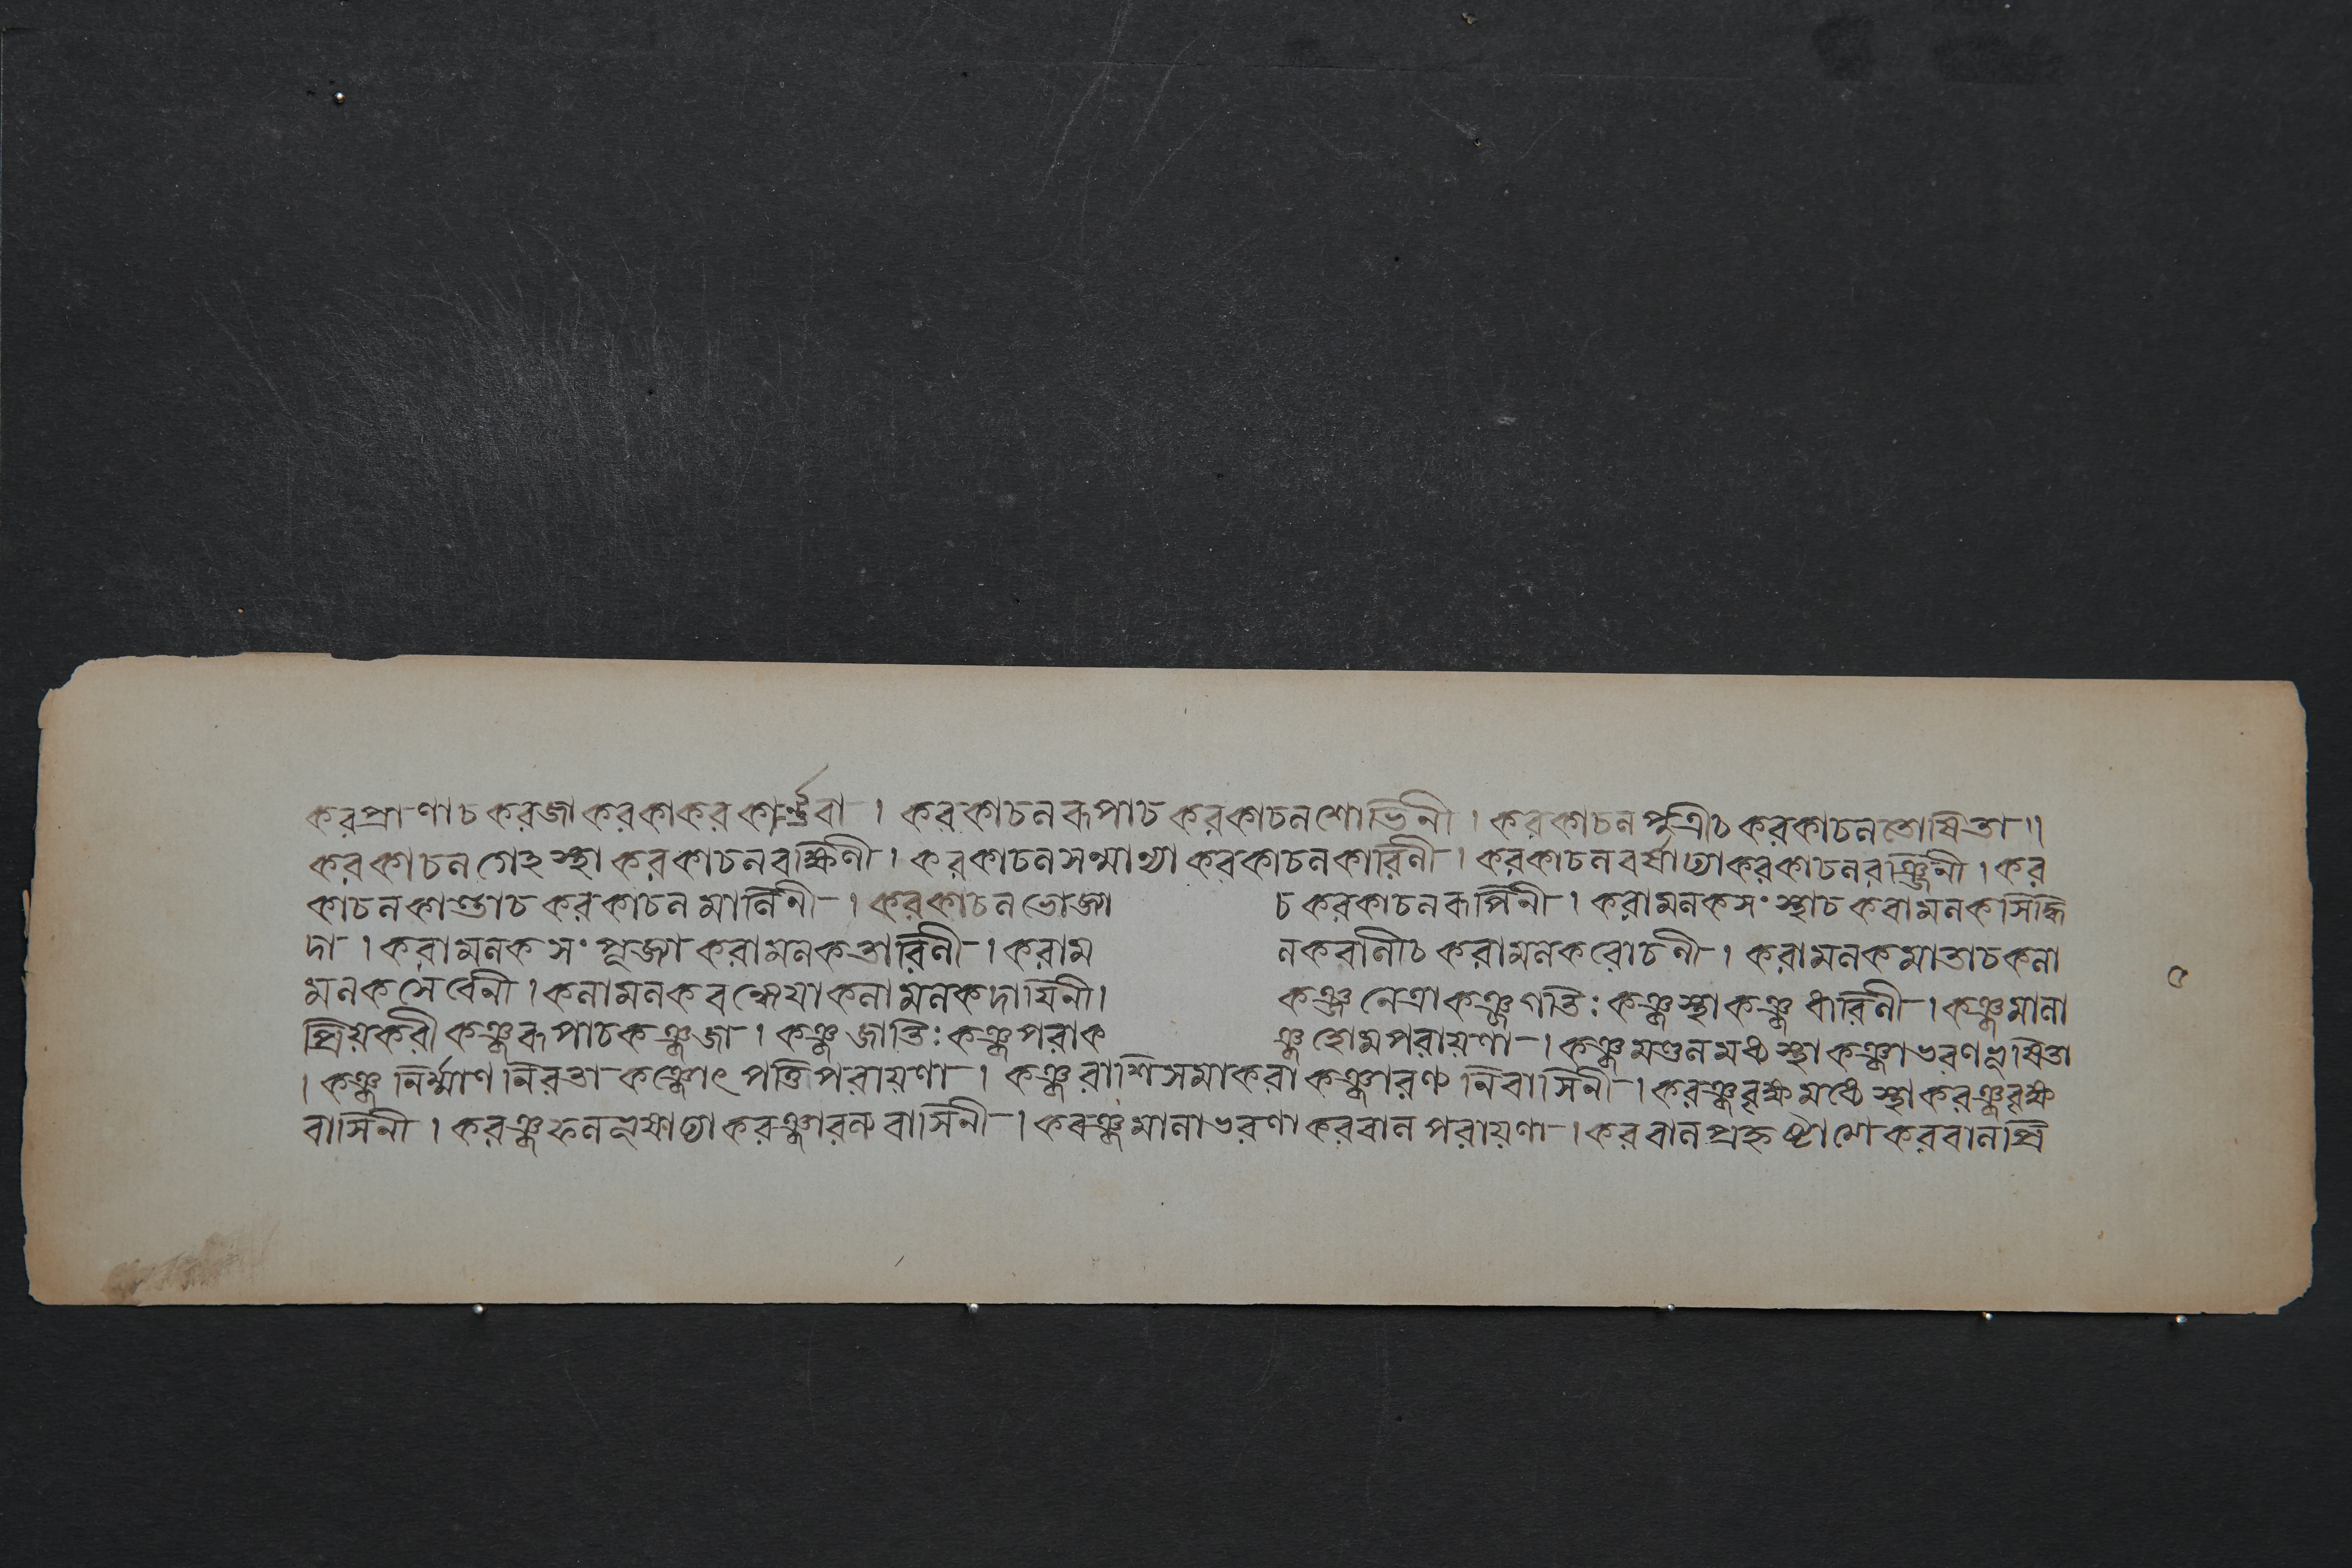 করপ্রাণাচ করজা করকা করকার্ণ্ণবা । করকাচনরূপাচ করকাচনশোভিনী । করকাচনপুত্রীচ করকাচনতোষিতা ॥
করকাচনগেহস্থা করকাচনরক্ষিণী । করকাচনসন্মাথ্যা করকাচনকারিণী । করকাচনবর্ণাঢ্যা করকাচনরঞ্জিনী । কর
কাচনকাণ্ডাচ করকাচনমানিনী । করকাচনভোজ্যা চ করকাচনরূপিনী । করামনকসংস্থাচ করামনকসিদ্ধি
দা । করামনকসংপূজ্যা করামনকতারিণী । করামনকরানীচ করামনকরোচনী । করামনকমাতাচ কনা
মনকসেবিনী । কনামনকবদ্ধ্যেয়া কনামনকদায়িনী । কঞ্জনেত্রা কঞ্জগতিঃ কঞ্জস্থা কঞ্জধারিণী । কঞ্জমানা
প্রিয়করী কঞ্জরূপাচ কঞ্জজা । কঞ্জজাতিঃ কঞ্জপরা কঞ্জহোমপরায়ণা । কঞ্জমণ্ডনমধ্যস্থা কঞ্জাভরণভূষিতা
। কঞ্জনির্ম্মাণনিরতা কঞ্জোৎপত্তিপরায়ণা । কঞ্জরাশিসমাকরা কঞ্জারণ্যনিবাসিনী । করঞ্জবৃক্ষমধ্যেস্থা করঞ্জবৃক্ষ
বাসিনী । করঞ্জফনভূষাঢ্যা করঞ্জারণ্যবাসিনী । করঞ্জমানাভরণা করবানপরায়ণা । করবানপ্রহৃষ্টাত্মা করবানপ্রি
৫